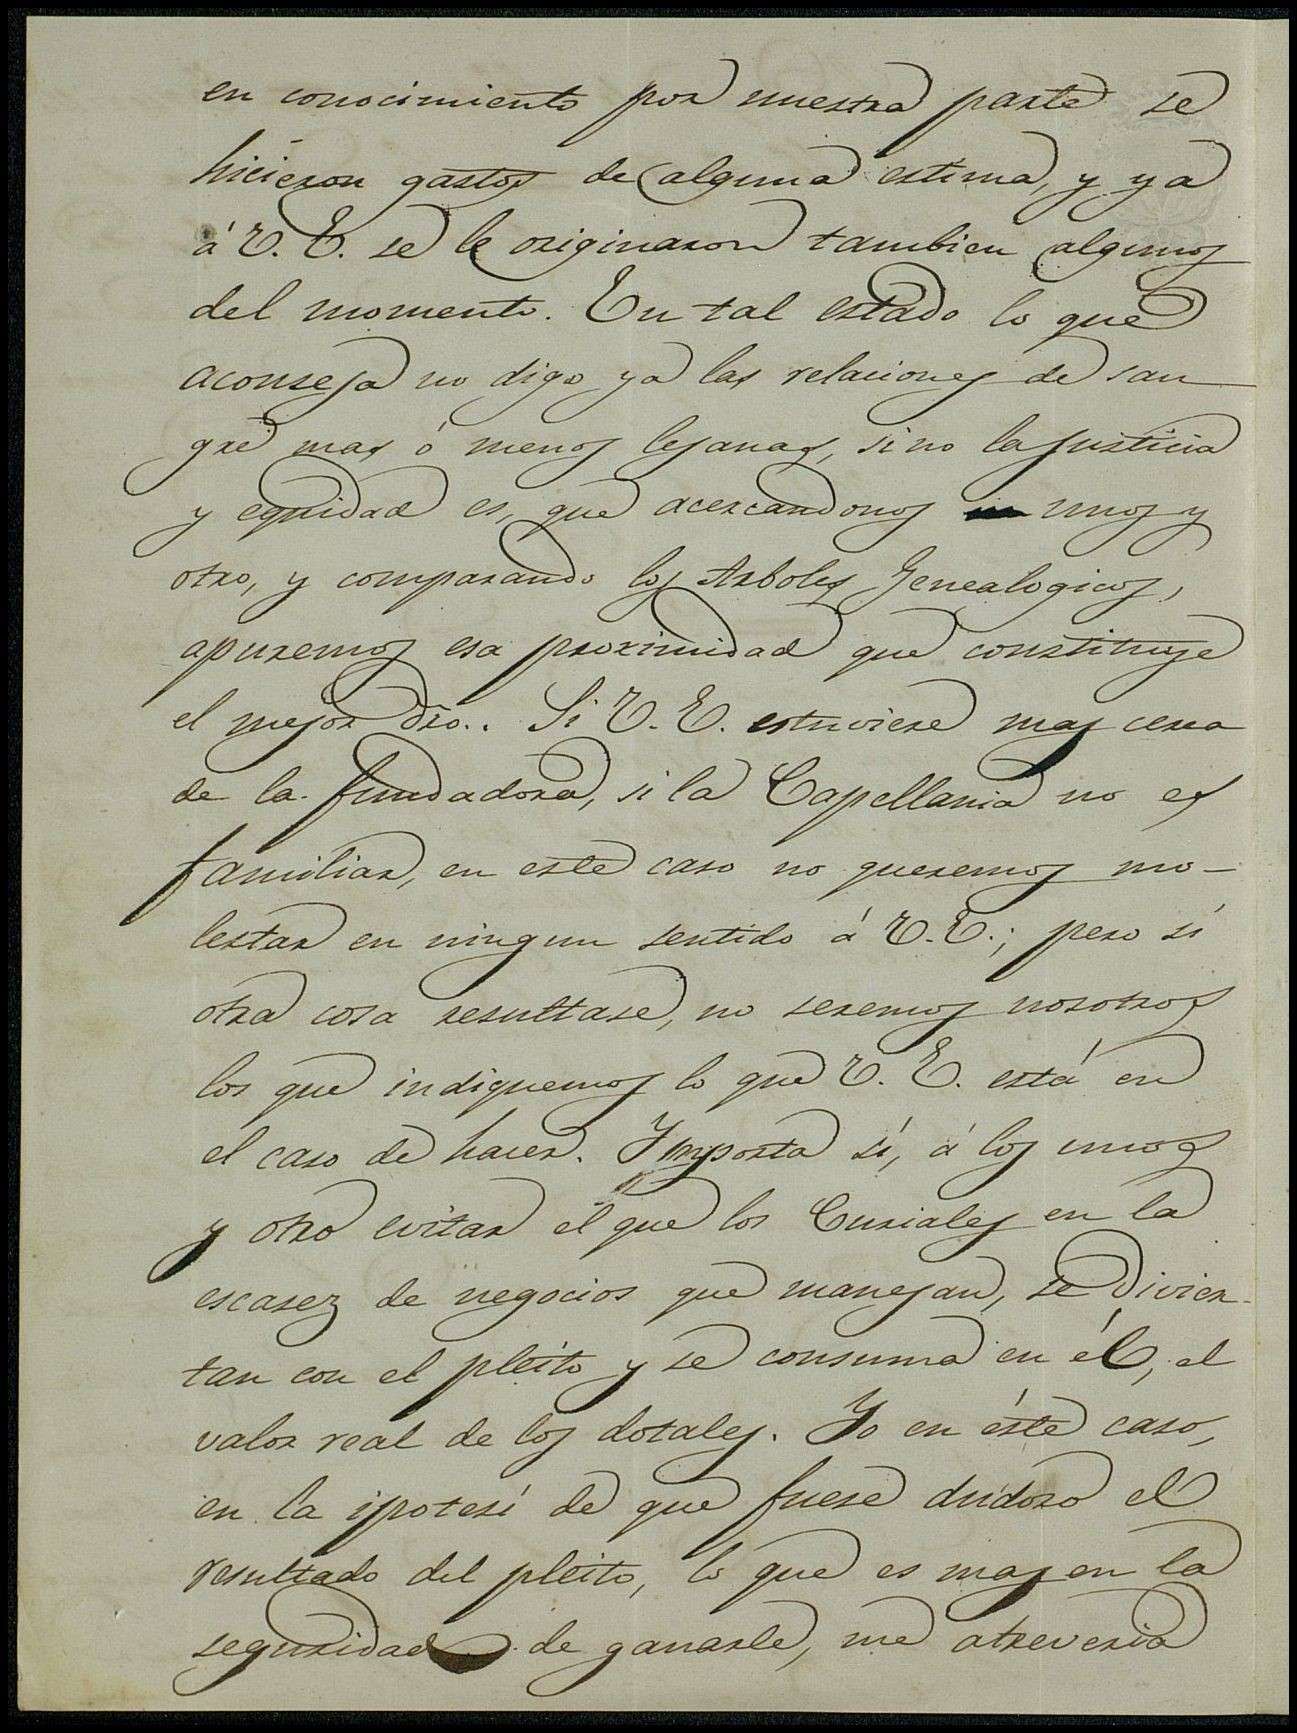 en conocimiento por nuestra parte se
hicieron gastos de alguna estima, y ya
á V. E. se le originaron tambien algunos
del momento. En tal estado lo que
aconseja no digo ya las relaciones de san
gre mas ó menos lejanas, sino la justicia
y equidad es, que acercandonos unos y
otro, y comparando los Arboles Genealogicos,
apuremos esa proximidad que constituye
el mejor dro.. Si V. E. estuviere mas cerca
de la fundadora, si la Capellania no es
familiar, en este caso no queremos mo-
lestar en ningun sentido á V. E.; pero si
otra cosa resultase, no seremos nosotros
los que indiquemos lo que V. E. está en
el caso de hacer. Importa sí, á los unos
y otro evitar el que los Curiales en la
escasez de negocios que manejan, se divier-
tan con el pleito y se consuma en él, el
valor real de los dotales. Yo en éste caso,
en la ipotesi de que fuese dudoso el
resultado del pleito, lo que es mas en la
seguridad de ganarle, me atreveria